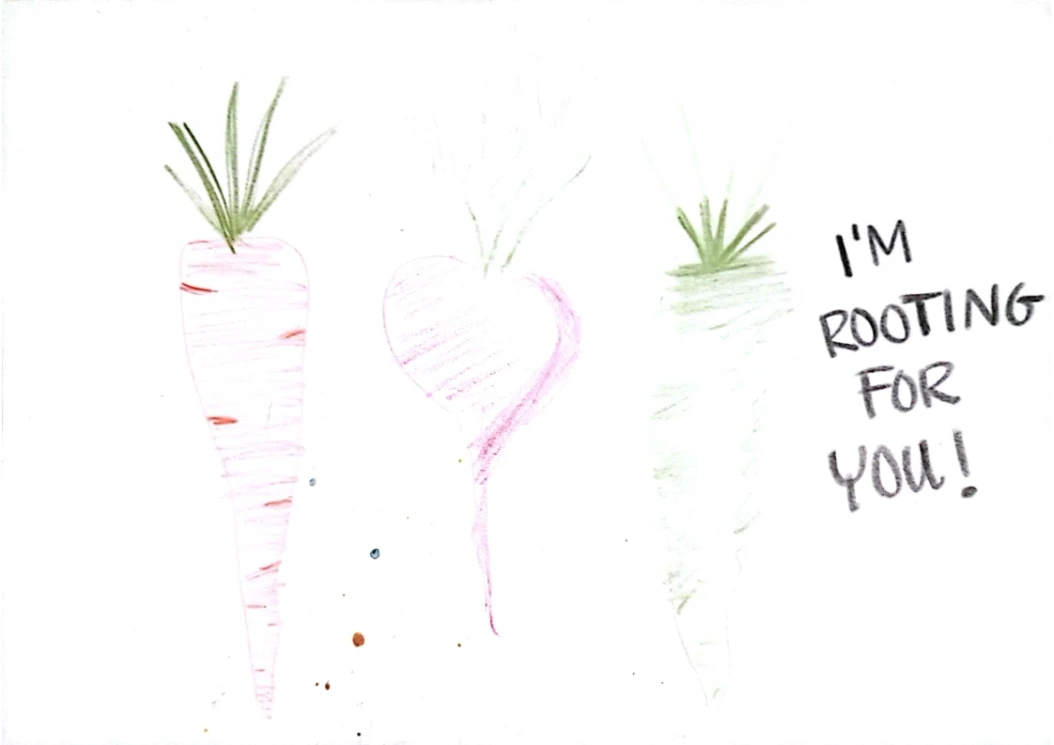 I'M
ROOTING
FOR
YOU!